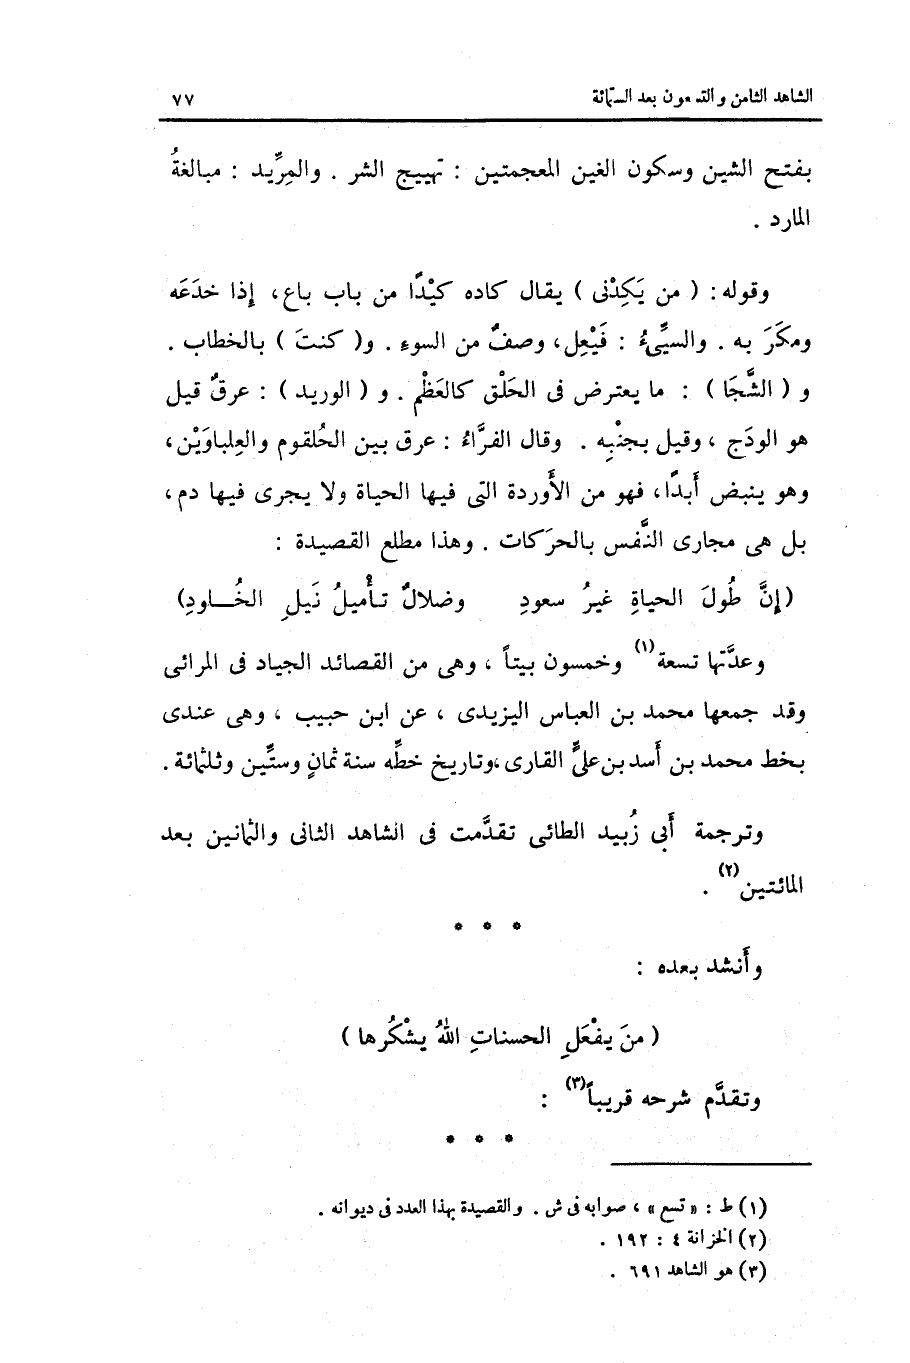 الشاهد الثامن والتسعون بعد الستمائة ٧٧
بفتح الشين وسكون الغين المعجمتين : تهييج الشر . والمِرِّيد : مبالغةُ
المارد .
وقوله: ( من يَكِدْنى ) يقال كاده كيْدًا من باب باع، إذا خدَعَه
ومكَرَ به . والسيِّئُ : فَيْعِل، وصفٌ من السوء . و( كنتَ ) بالخطاب .
و ( الشَّجَا ) : ما يعترض فى الحَلْق كالعَظْم . و ( الوريد ) : عرقٌ قيل
هو الودَج ، وقيل بجنْبِه . وقال الفرَّاءُ : عرق بين الحُلقوم والعِلباوَيْن،
وهو ينبض أَبدًا، فهو من الأَوردة التى فيها الحياة ولا يجرى فيها دم،
بل هى مجارى النَّفس بالحرَكات . وهذا مطلع القصيدة :
(إنَّ طُولَ الحياةِ غيرُ سعودِ وضلالٌ تأْميلُ نَيلِ الخُلودِ)
وعدَّتها تسعة(١) وخمسون بيتاً ، وهى من القصائد الجياد فى المراثى
وقد جمعها محمد بن العباس اليزيدى ، عن ابن حبيب ، وهى عندى
بخط محمد بن أَسد بن علىٍّ القارى ،وتاريخ خطِّه سنة ثمانٍ وستِّين وثلثمائة .
وترجمة أَبى زُبيد الطائى تقدَّمت فى الشاهد الثانى والثمانين بعد
المائتين(٢) .
* * *
وأَنشد بعده :
( منَ يفْعَلِ الحسناتِ اللهُ يشْكُرها )
وتقدَّم شرحه قريباً(٣) :
* * *
(١) ط : « تسع » ، صوابه فى ش . والقصيدة بهذا العدد فى ديوانه .
(٢) الخزانة ٤ : ١٩٢ .
(٣) هو الشاهد ٦٩١ .